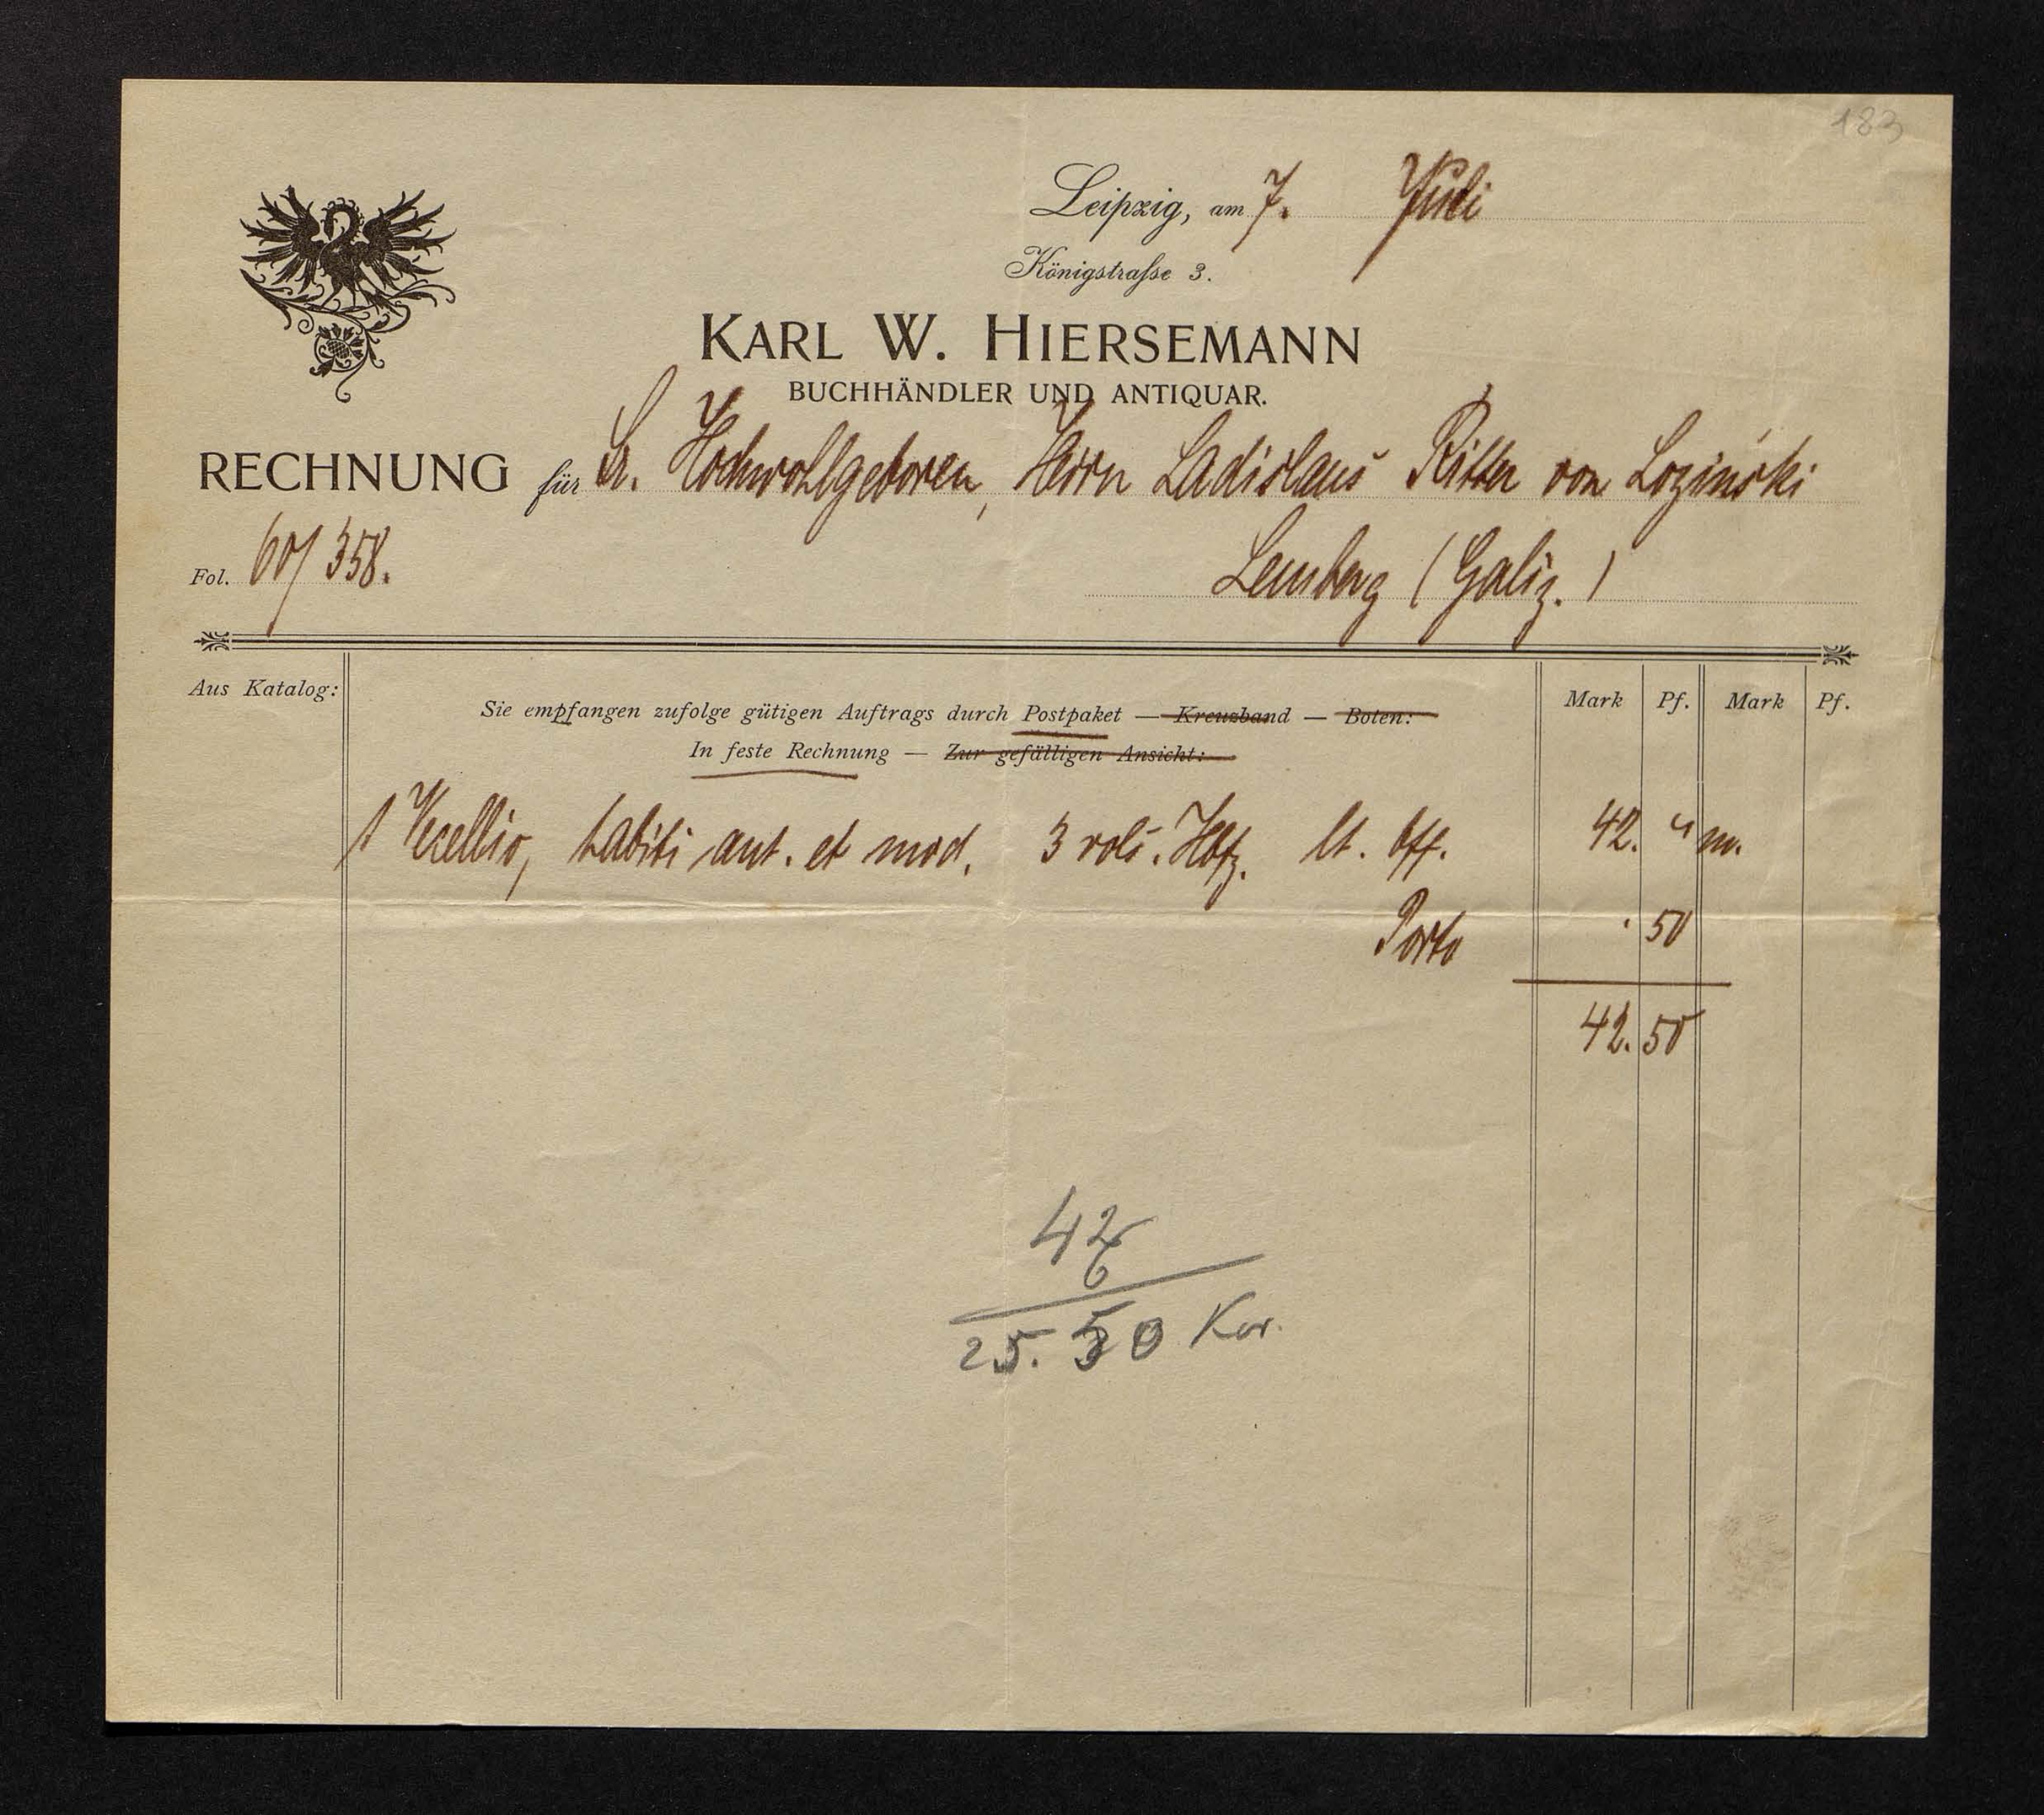 183
Leipzig, am 7. Juli
Königstraſse 3.
KARL W. HIERSEMANN
BUCHHÄNDLER UND ANTIQUAR.
RECHNUNG für Sr. Hochwohlgeboren, Herrn Ladislaus Ritter von Lozinśki
Fol. 60/358. Lemberg (Galiz.)
Aus Katalog: Mark Pf. Mark Pf.
Sie empfangen zufolge gütigen Auftrags durch Postpaket — Kreuzband — Boten:
In feste Rechnung — Zur gefälligen Ansicht:
1 Vecellio, habiti ant. et mod. 3 vols. Hbfz. lt. Off. 42. " m.
Porto . 50
42. 50
42
25. 50 Kor.